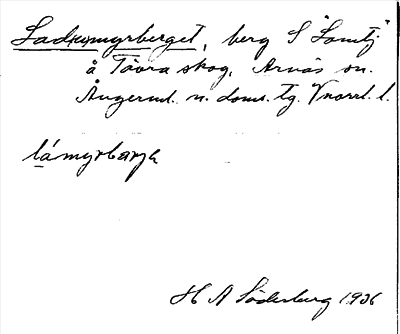 Ladkomyrberget, berg S "Lomtj"
å Tävra skog, Arnäs sn.
Ångerml. n. doms. tg. Vnorrl. l.
lámyrbarjə
H A Söderberg 1936